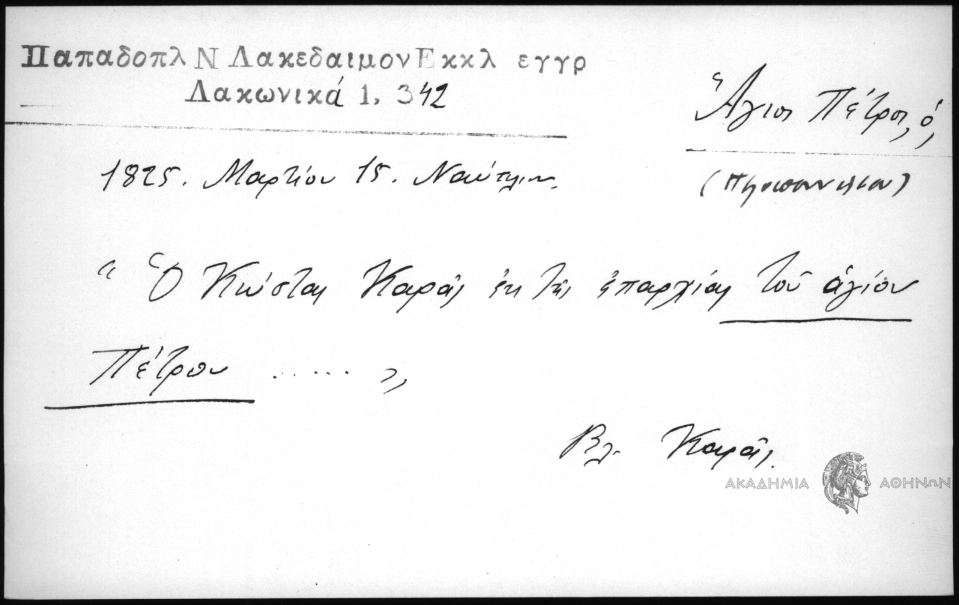 Παπαδοπλ Ν Λακεδαιμον Εκκλ εγγρ
Λακωνικά 1. 342
Ἅγιος Πέτρος, ὁ,
1825. Μαρτίου 15. Ναύπλιον.
(Πελοποννήσου)
" Ὁ Κώστας Καρᾶς ἐκ τῆς ἐπαρχίας τοῦ ἁγίου
Πέτρου ..... "
Βλ. Καρᾶς.
ΑΚΑΔΗΜΙΑ ΑΘΗΝΩΝ